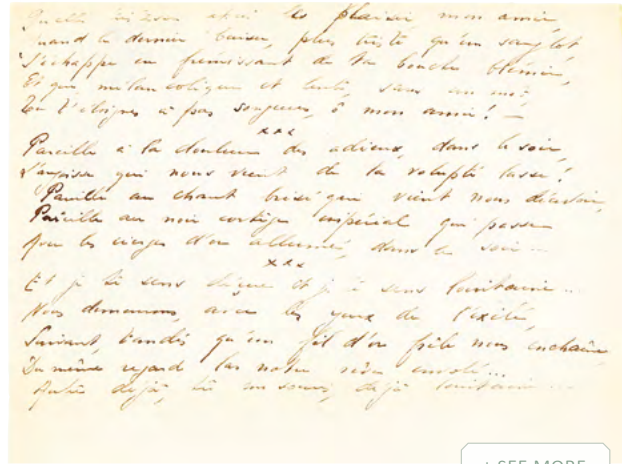 Quelle tristesse après les plaisirs mon amie,
Quand le dernier baiser, plus triste qu'un sanglot
S'échappe en frémissant de ta bouche blêmie,
Et que mélancolique et lente, sans un mot,
Tu t'éloignes à pas songeurs, ô mon amie! —
x x x
Pareille à la douleur des adieux, dans le soir,
L'angoisse qui nous vient de la volupté lasse!
Pareille au chant brisé qui vient nous décevoir,
Pareille au noir cortège impérial qui passe
Avec les cierges d'or allumés, dans le soir ...
x x x
Et je te sens déçue et je te sens lointaine ...
Nous demeurons, avec les yeux de l'exilé,
Suivant, tandis qu'un fil d'or frêle nous enchaîne,
Du même regard las notre rêve envolé ...
Autre déjà, tu me souris, déjà lointaine ...
+ SEE MORE